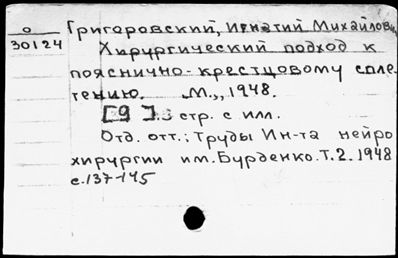 о Григоровский, Игнатий Михайлович
30124 Хирургический подход к
пояснично-крестцовому спле-
тению. М., 1948.
[9] с. стр. с илл.
Отд. отт.: Труды Ин-та нейро
хирургии им. Бурденко. Т. 2. 1948
с. 137-145